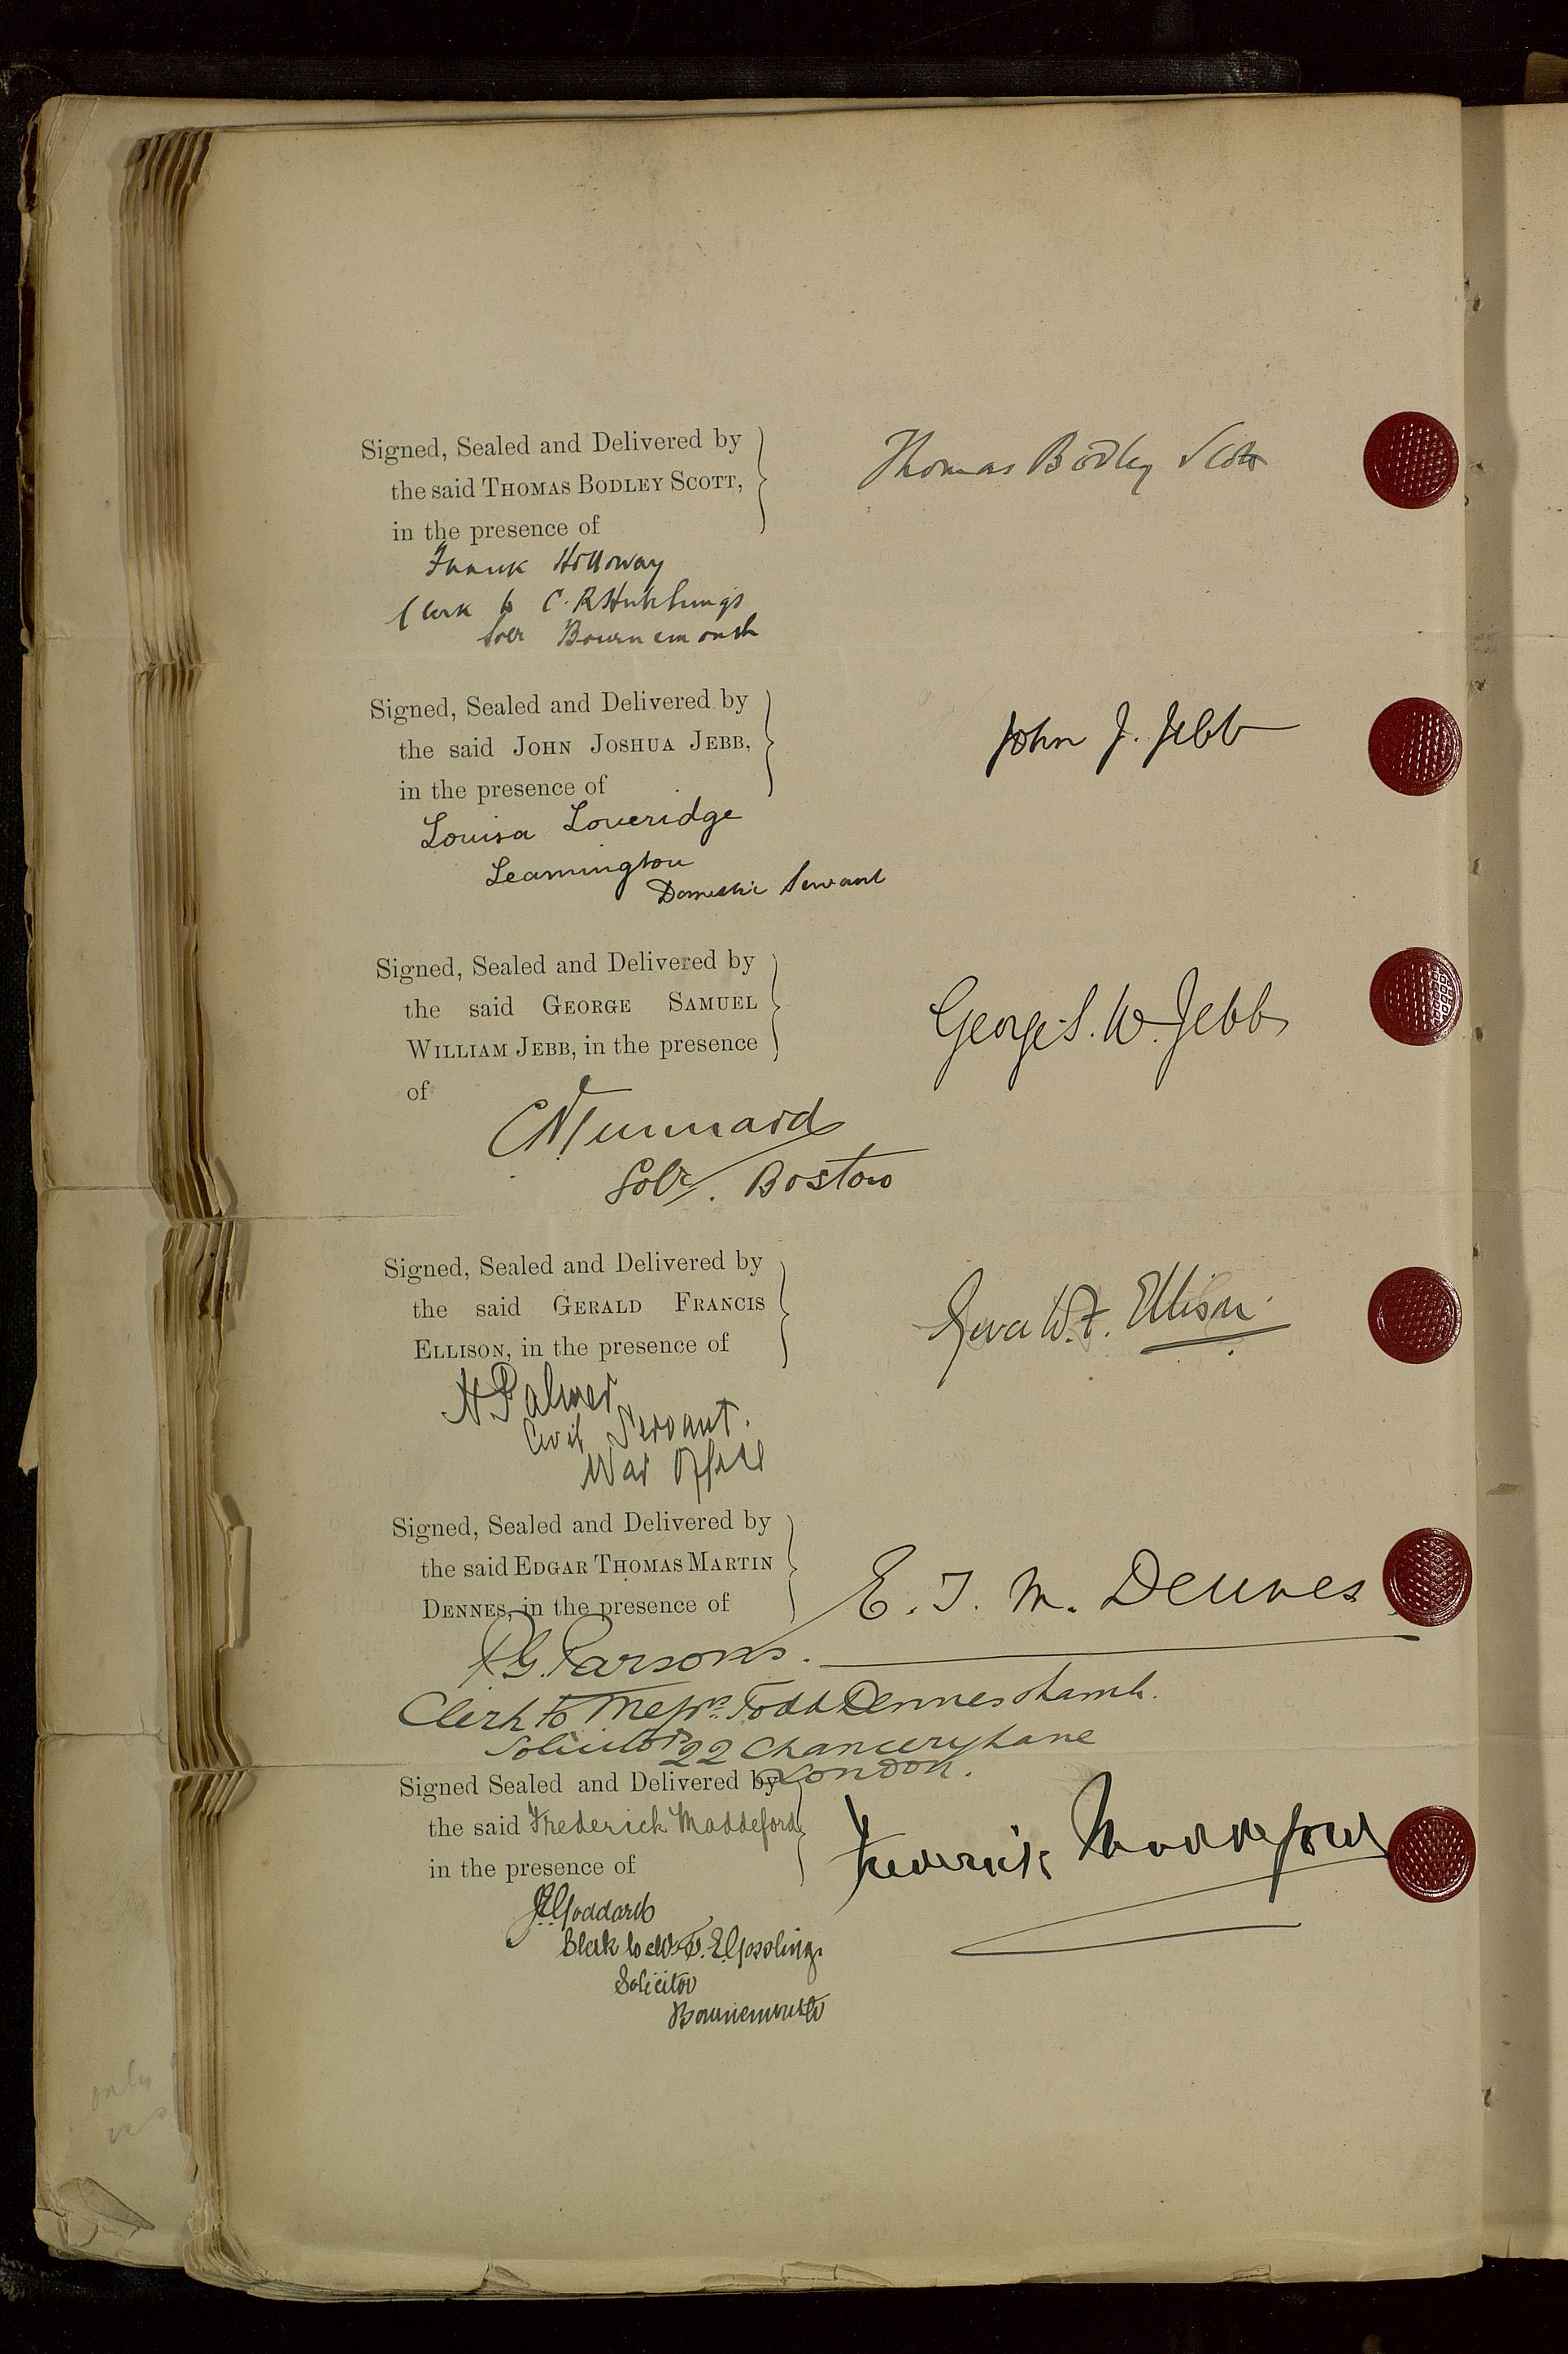 Signed, Sealed and Delivered by
the said THOMAS BODLEY SCOTT,
in the presence of
Thomas Bodley Scott
Frank Holloway
Clerk to C. R Hutchings
Solr Bournemouth
Signed, Sealed and Delivered by
the said JOHN JOSHUA JEBB,
in the presence of
John J. Jebb
Louisa Loveridge
Leamington
Domestic Servant
Signed, Sealed and Delivered by
the said GEORGE SAMUEL
WILLIAM JEBB, in the presence
of
George S. W. Jebb
C N Tunnard
Solr. Boston
Signed, Sealed and Delivered by
the said GERALD FRANCIS
ELLISON, in the presence of
F. Ellison
H Palmer
Civil Servant.
War Office
Signed, Sealed and Delivered by
the said EDGAR THOMAS MARTIN
DENNES, in the presence of
E. T. M. Dennes
G. Parsons.
Clerk to Messrs. Todd Dennes & Lamb.
Solicitors 22 Chancery Lane
London.
Signed Sealed and Delivered by
the said Frederick Maddeford
in the presence of
Frederick Maddeford
Goddard
Clerk to E. Gossling
Solicitor
Bournemouth
only